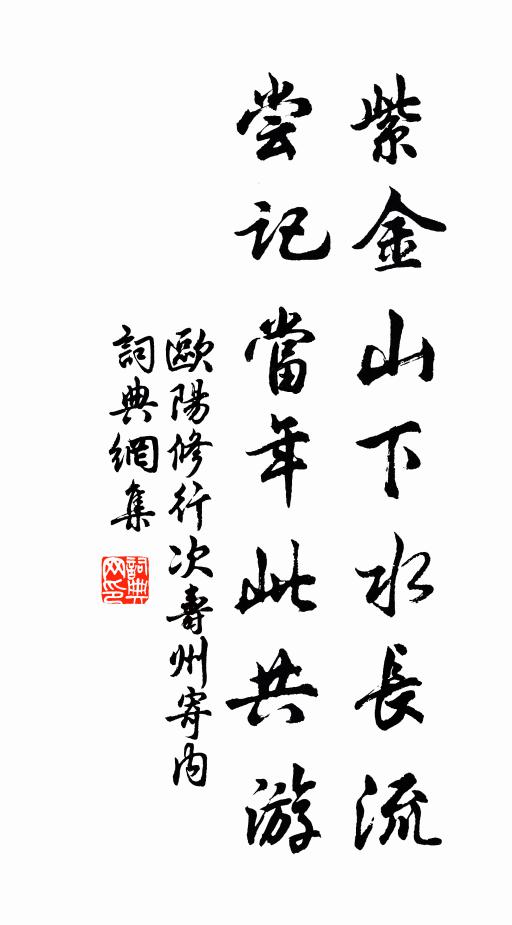 紫金山下水長流
尝記當年此共游
歐陽修行次壽州寄内
詞典網集
詞典网印